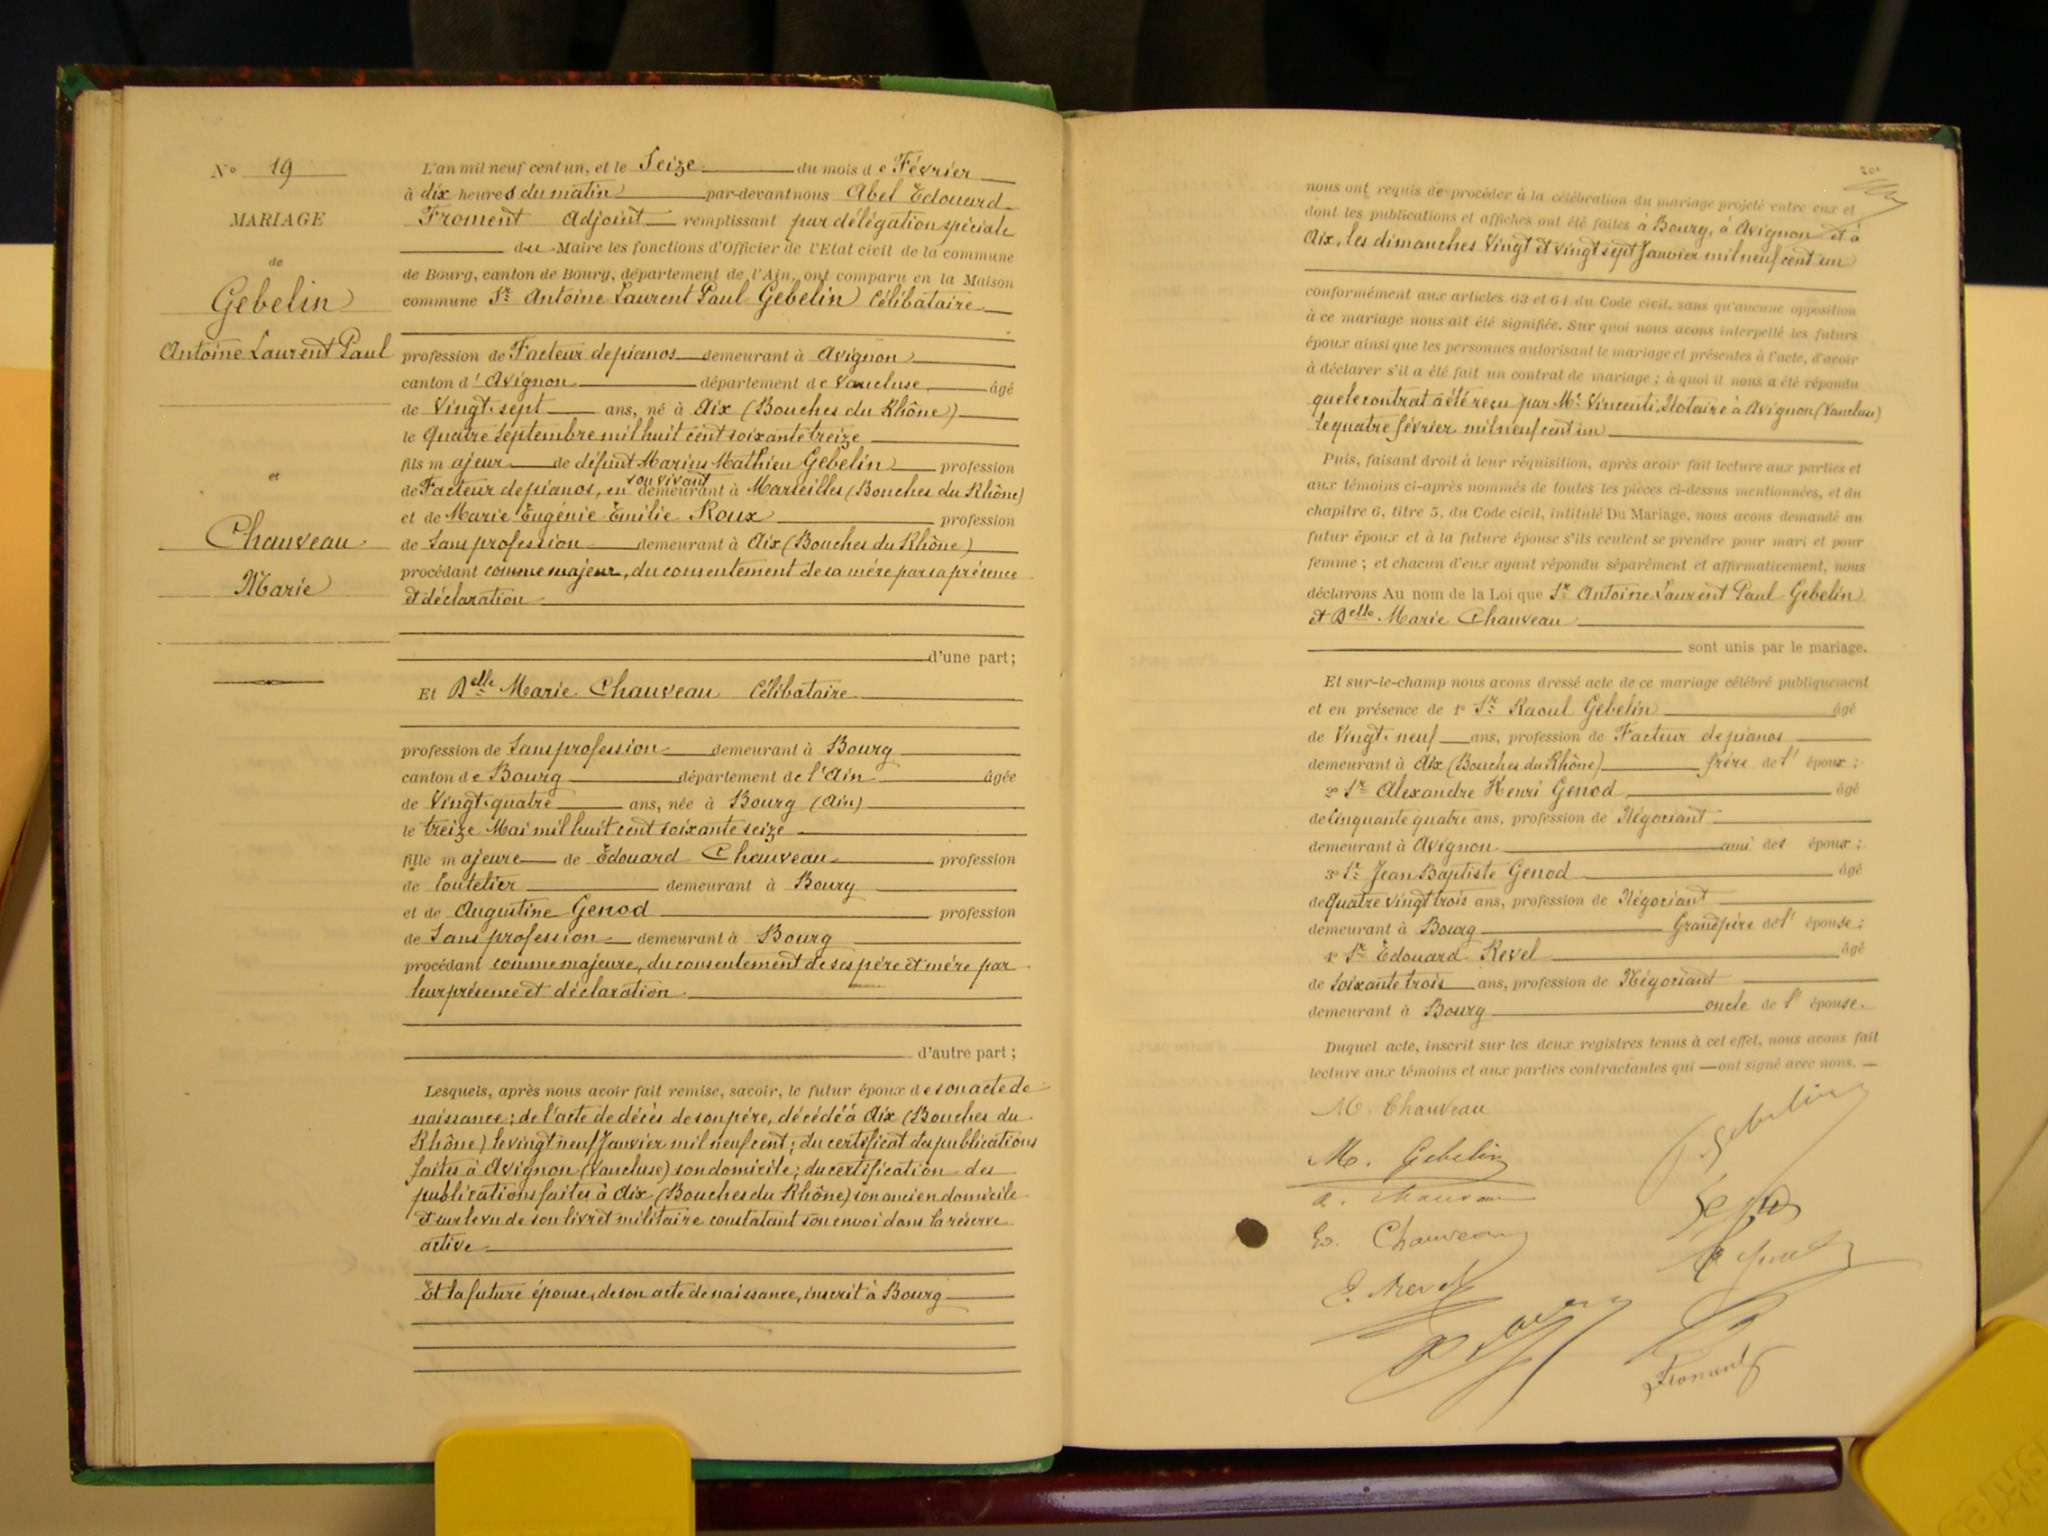 N° 19
MARIAGE
de
Gebelin
Antoine Laurent Paul
et
Chauveau
Marie
L'an mil neuf cent un, et le Seize du mois de Février
à dix heures du matin par-devant nous Abel Edouard
Froment Adjoint remplissant par délégation spéciale
du Maire les fonctions d'Officier de l'Etat civil de la commune
de Bourg, canton de Bourg, département de l'Ain, ont comparu en la Maison
commune Sr Antoine Laurent Paul Gebelin Célibataire
profession de Facteur de pianos demeurant à Avignon
canton d'Avignon département de Vaucluse âgé
de Vingt-sept ans, né à Aix (Bouches du Rhône)
le quatre Septembre mil huit cent soixante treize
fils majeur de défunt Marius Mathieu Gebelin profession
de Facteur de pianos, en son vivant demeurant à Marseilles (Bouches du Rhône)
et de Marie Eugénie Emilie Roux profession
de Sans profession demeurant à Aix (Bouches du Rhône)
procédant comme majeur, du consentement de sa mère par sa présence
et déclaration
d'une part;
Et Delle Marie Chauveau Célibataire
profession de Sans profession demeurant à Bourg
canton de Bourg département de l'Ain âgée
de Vingt-quatre ans, née à Bourg (Ain)
le treize Mai mil huit cent soixante seize
fille majeure de Edouard Chauveau profession
de Coutelier demeurant à Bourg
et de Augustine Genod profession
de Sans profession demeurant à Bourg
procédant comme majeure, du consentement de ses père et mère par
leur présence et déclaration
d'autre part;
Lesquels, après nous avoir fait remise, savoir, le futur époux de son acte de
naissance; de l'acte de décès de son père, décédé à Aix (Bouches du
Rhône) le vingt neuf Janvier mil neuf cent; du certificat des publications
faites à Avignon (Vaucluse) son domicile; du certification des
publications faites à Aix (Bouches du Rhône) son ancien domicile
et sur le vu de son livret militaire constatant son envoi dans la réserve
active
Et la future épouse, de son acte de naissance, inscrit à Bourg
nous ont requis de procéder à la célébration du mariage projeté entre eux et
dont les publications et affiches ont été faites à Bourg, à Avignon et à
Aix, les dimanches Vingt et vingt sept Janvier mil neuf cent un
conformément aux articles 63 et 64 du Code civil, sans qu'aucune opposition
à ce mariage nous ait été signifiée. Sur quoi nous avons interpellé les futurs
époux ainsi que les personnes autorisant le mariage et présentes à l'acte, d'avoir
à déclarer s'il a été fait un contrat de mariage; à quoi il nous a été répondu
que le contrat a été reçu par Me Vincenti, Notaire à Avignon (Vaucluse)
le quatre février mil neuf cent un
Puis, faisant droit à leur réquisition, après avoir fait lecture aux parties et
aux témoins ci-après nommés de toutes les pièces ci-dessus mentionnées, et du
chapitre 6, titre 5, du Code civil, intitulé Du Mariage, nous avons demandé au
futur époux et à la future épouse s'ils veulent se prendre pour mari et pour
femme; et chacun d'eux ayant répondu séparément et affirmativement, nous
déclarons Au nom de la Loi que Sr Antoine Laurent Paul Gebelin
et Delle Marie Chauveau
sont unis par le mariage.
Et sur-le-champ nous avons dressé acte de ce mariage célébré publiquement
et en présence de 1° Sr Raoul Gebelin âgé
de Vingt-neuf ans, profession de Facteur de pianos
demeurant à Aix (Bouches du Rhône) frère de l'époux;
2° Sr Alexandre Henri Genod âgé
de Cinquante quatre ans, profession de Négociant
demeurant à Avignon ami des époux;
3° Sr Jean Baptiste Genod âgé
de Quatre vingt trois ans, profession de Négociant
demeurant à Bourg Grand père de l'épouse;
4° Sr Edouard Revel âgé
de Soixante trois ans, profession de Négociant
demeurant à Bourg oncle de l'épouse.
Duquel acte, inscrit sur les deux registres tenus à cet effet, nous avons fait
lecture aux témoins et aux parties contractantes qui ont signé avec nous.
M. Chauveau
Gebelin
M. Gebelin
a. Chauveau
Ed. Chauveau
E. Revel
Froment